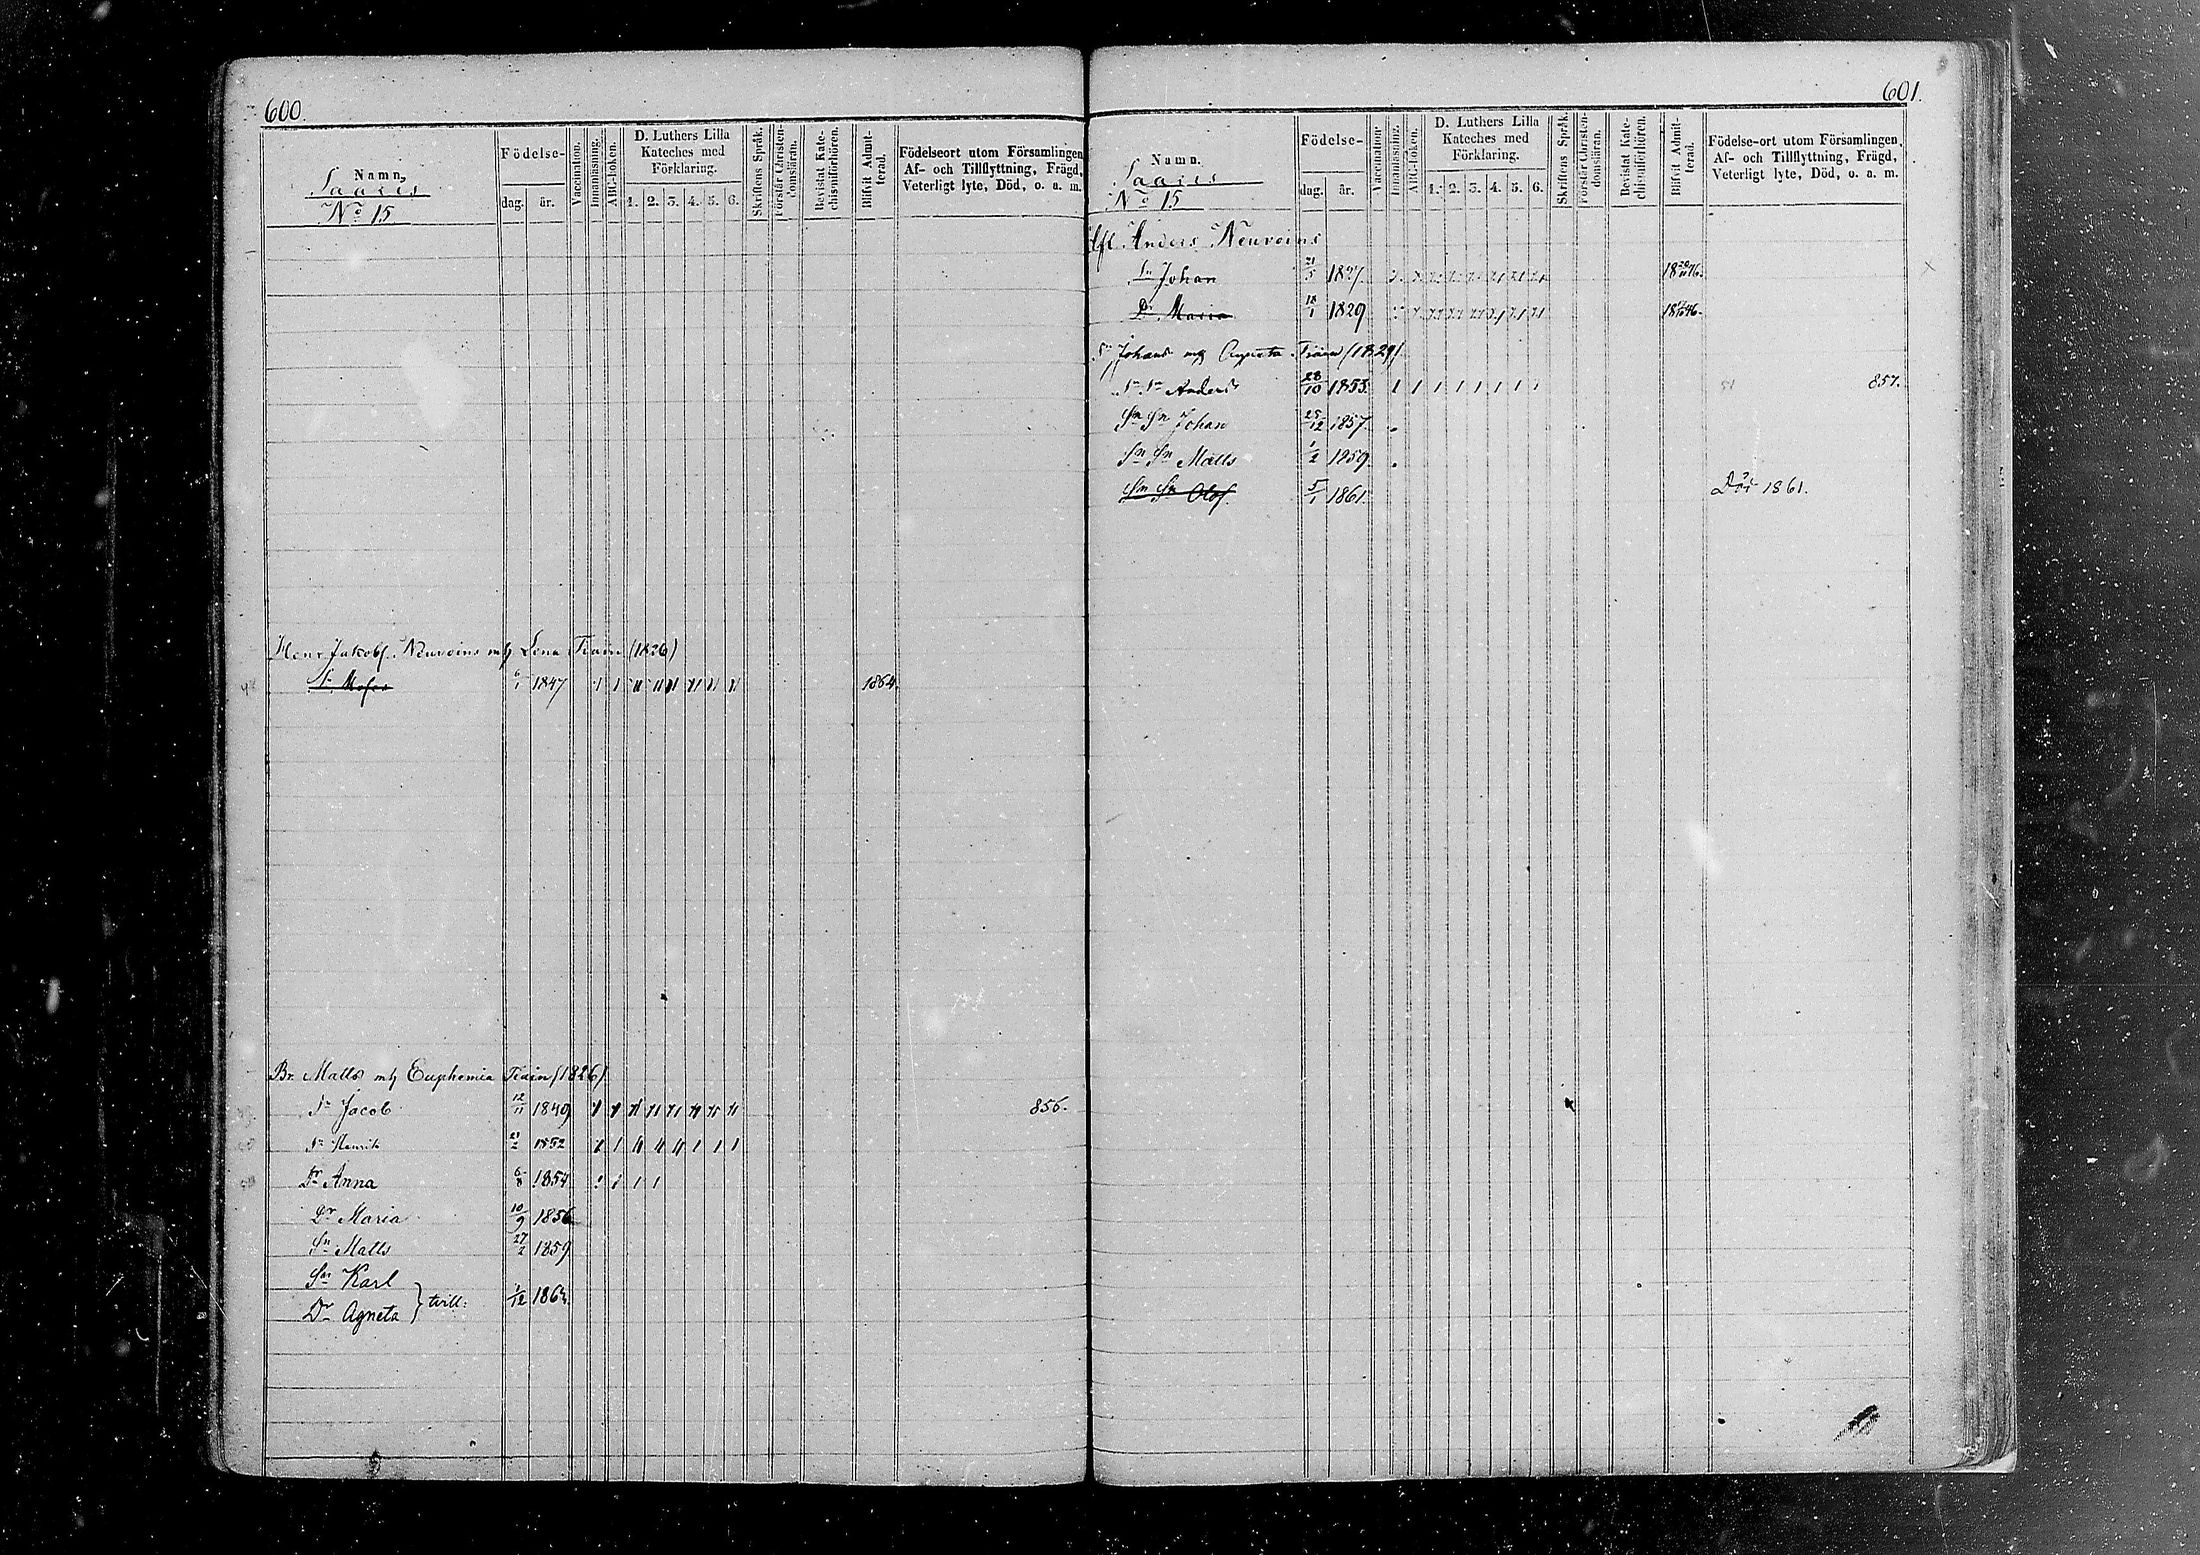 600
Namn.
Saaris
No 15
Födelse-
dag. år.
Vaccination.
Innanläsning.
ABC-boken.
D. Luthers Lilla
Kateches med
Förklaring.
1. 2. 3. 4. 5. 6.
Skriftens Språk.
Förstår Christen-
domsläran.
Bevistat Kate-
chismiförhören.
Blifvit Admit-
terad.
Födelseort utom Församlingen
Af- och Tillflyttning, Frägd,
Veterligt lyte, Död, o. a. m.
Henr. Jakobs. Neuvoins Lena (1826)
Sn Moses 6/1 1847 1864.
Br. Matts Euphemia (1826)
Sn Jacob 12/11 1849 856.
Sn Henrik 21/2 1852
Dr Anna 6/8 1854
Dr Maria 10/9 1856
Sn Matts 27/2 1859
Sn Karl
Dr Agneta } tvill: 1/12
601.
Namn.
Saaris
No 15
Födelse-
dag. år.
Vaccination
Innanläsning.
ABC-boken.
D. Luthers Lilla
Kateches med
Förklaring.
1. 2. 3. 4. 5. 6.
Skriftens Språk.
Förstår Christen-
domsläran.
Bevistat Kate-
chismiförhören.
Blifvit Admit-
terad.
Födelse-ort utom Församlingen,
Af- och Tillflyttning, Frägd,
Veterligt lyte, Död, o. a. m.
Afl. Anders Neuvoins
Sn Johan 21/5 1827
Dr Maria 18/1 1829
Sn Johans (1829)
Sn Sn Anders 28/10 1853 857.
Sn Sn Johan 25/12 1857
Sn Sn Matts 1/2 1859
Sn Sn Olof 5/1 1861 1861.